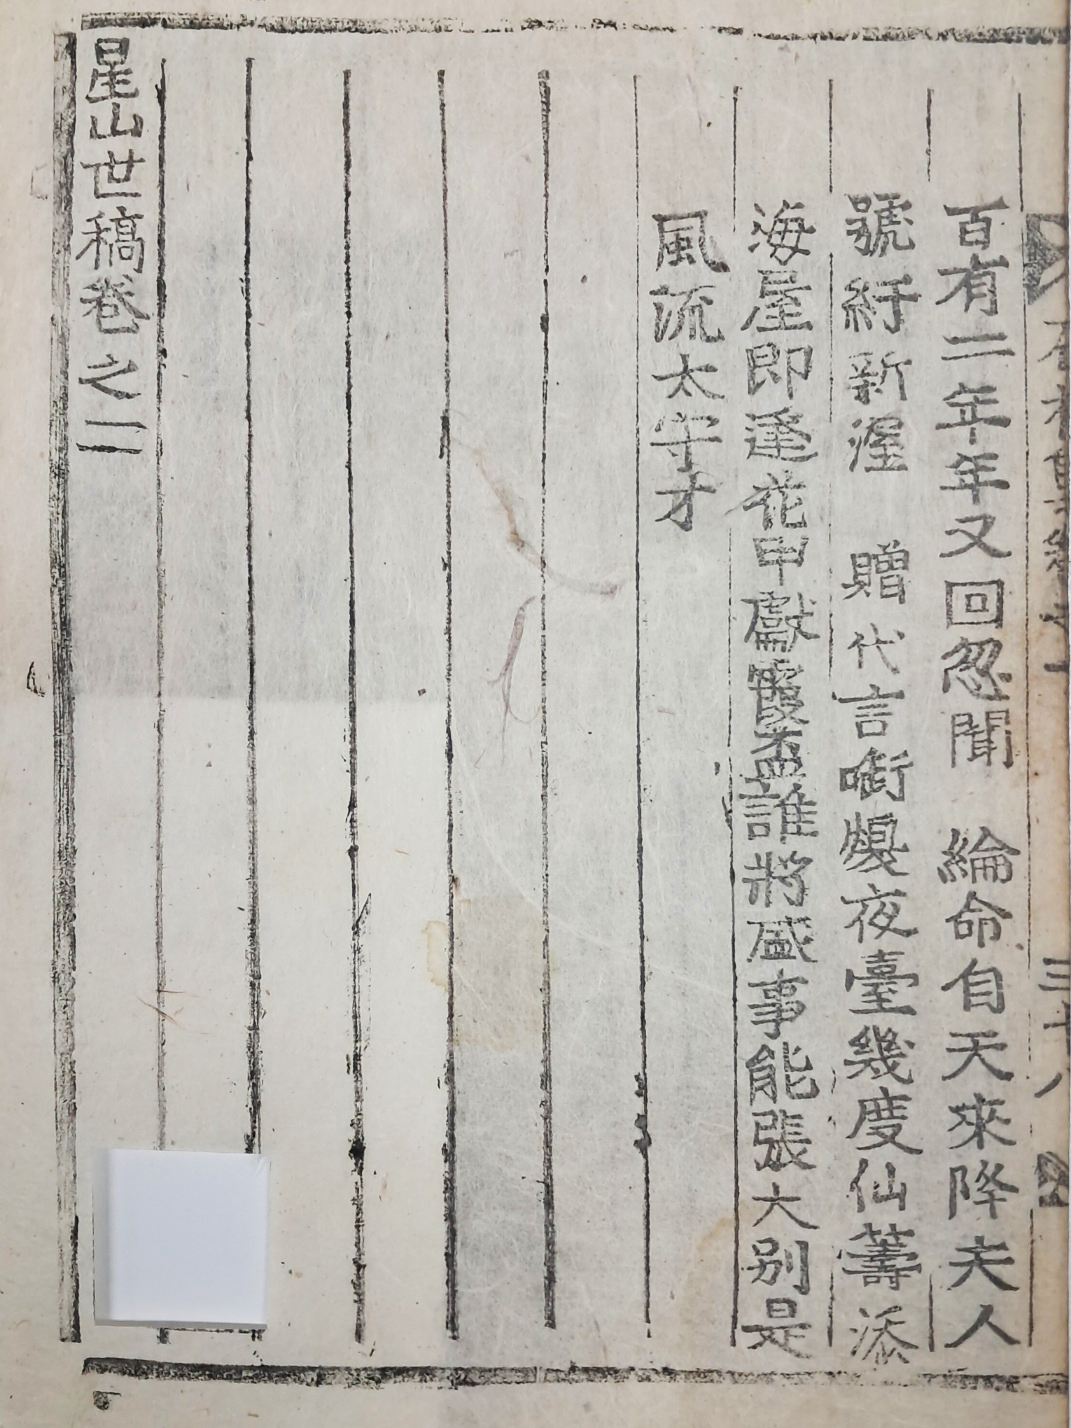 百有二年年又回忽聞 綸命自天來降夫人
號紆新渥 贈代言啣熳夜臺幾度仙籌添
海屋即逢花甲獻霞盃誰將盛事能張大別是
風流太守才
星山世稿卷之二